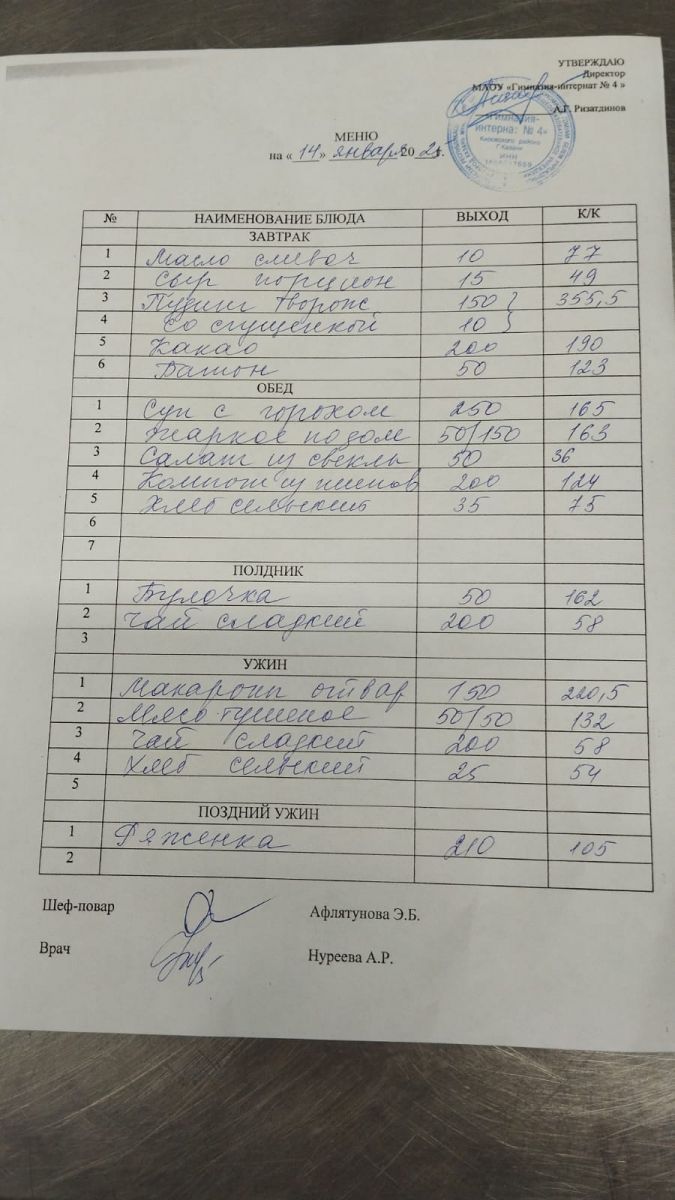 УТВЕРЖДАЮ
Директор
МАОУ «Гимназия-интернат № 4 »
А.Г. Ризатдинов
«Гимназия-
интернат № 4»
Кировского района
г.Казани
ИНН
МЕНЮ
на « 14 » января 20 25 г.
№ НАИМЕНОВАНИЕ БЛЮДА ВЫХОД К/К
ЗАВТРАК
1 Масло сливоч 10 77
2 Сыр порцион 15 49
3 Пудинг творож 150 } 355,5
4 со сгущенкой 10 }
5 Какао 200 190
6 Батон 50 123
ОБЕД
1 Суп с горохом 250 165
2 Жаркое по дом 50/150 163
3 Салат из свеклы 50 36
4 Компот из изюмов 200 124
5 Хлеб сельский 35 75
6
7
ПОЛДНИК
1 Булочка 50 162
2 Чай сладкий 200 58
3
УЖИН
1 Макароны отвар 150 220,5
2 Мясо тушеное 50/50 132
3 Чай сладкий 200 58
4 Хлеб сельский 25 54
5
ПОЗДНИЙ УЖИН
1 Ряженка 210 105
2
Шеф-повар Афлятунова Э.Б.
Врач Нуреева А.Р.